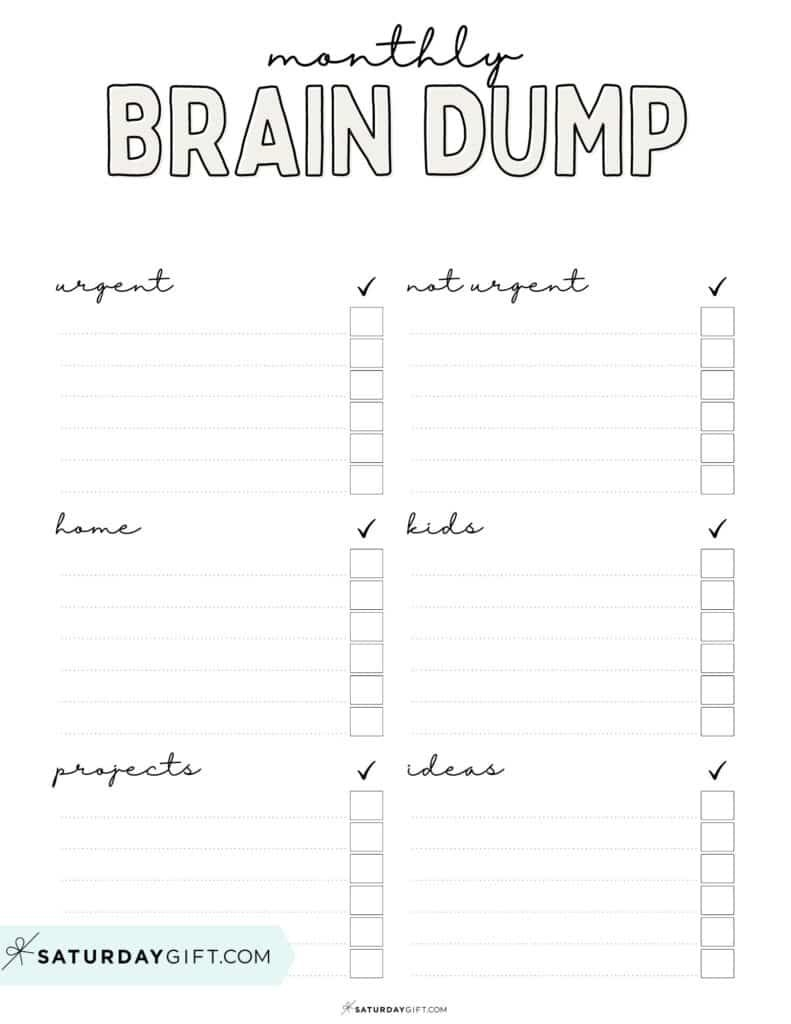 monthly
BRAIN DUMP
urgent ✓
not urgent ✓
home ✓
kids ✓
projects ✓
ideas ✓
SATURDAYGIFT.COM
SATURDAYGIFT.COM